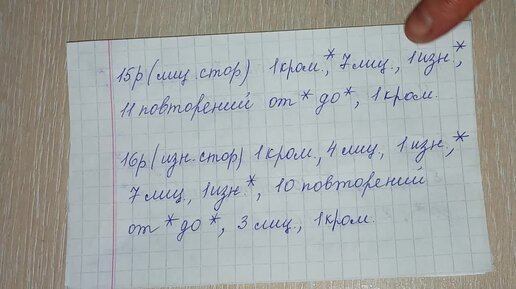 15р (лиц. стор) 1кром,* 7лиц., 1изн.*,
11 повторений от * до *, 1кром.
16р. (изн. стор) 1кром., 4 лиц, 1 изн,*
7 лиц, 1изн.*, 10 повторений
от * до *, 3 лиц., 1кром.